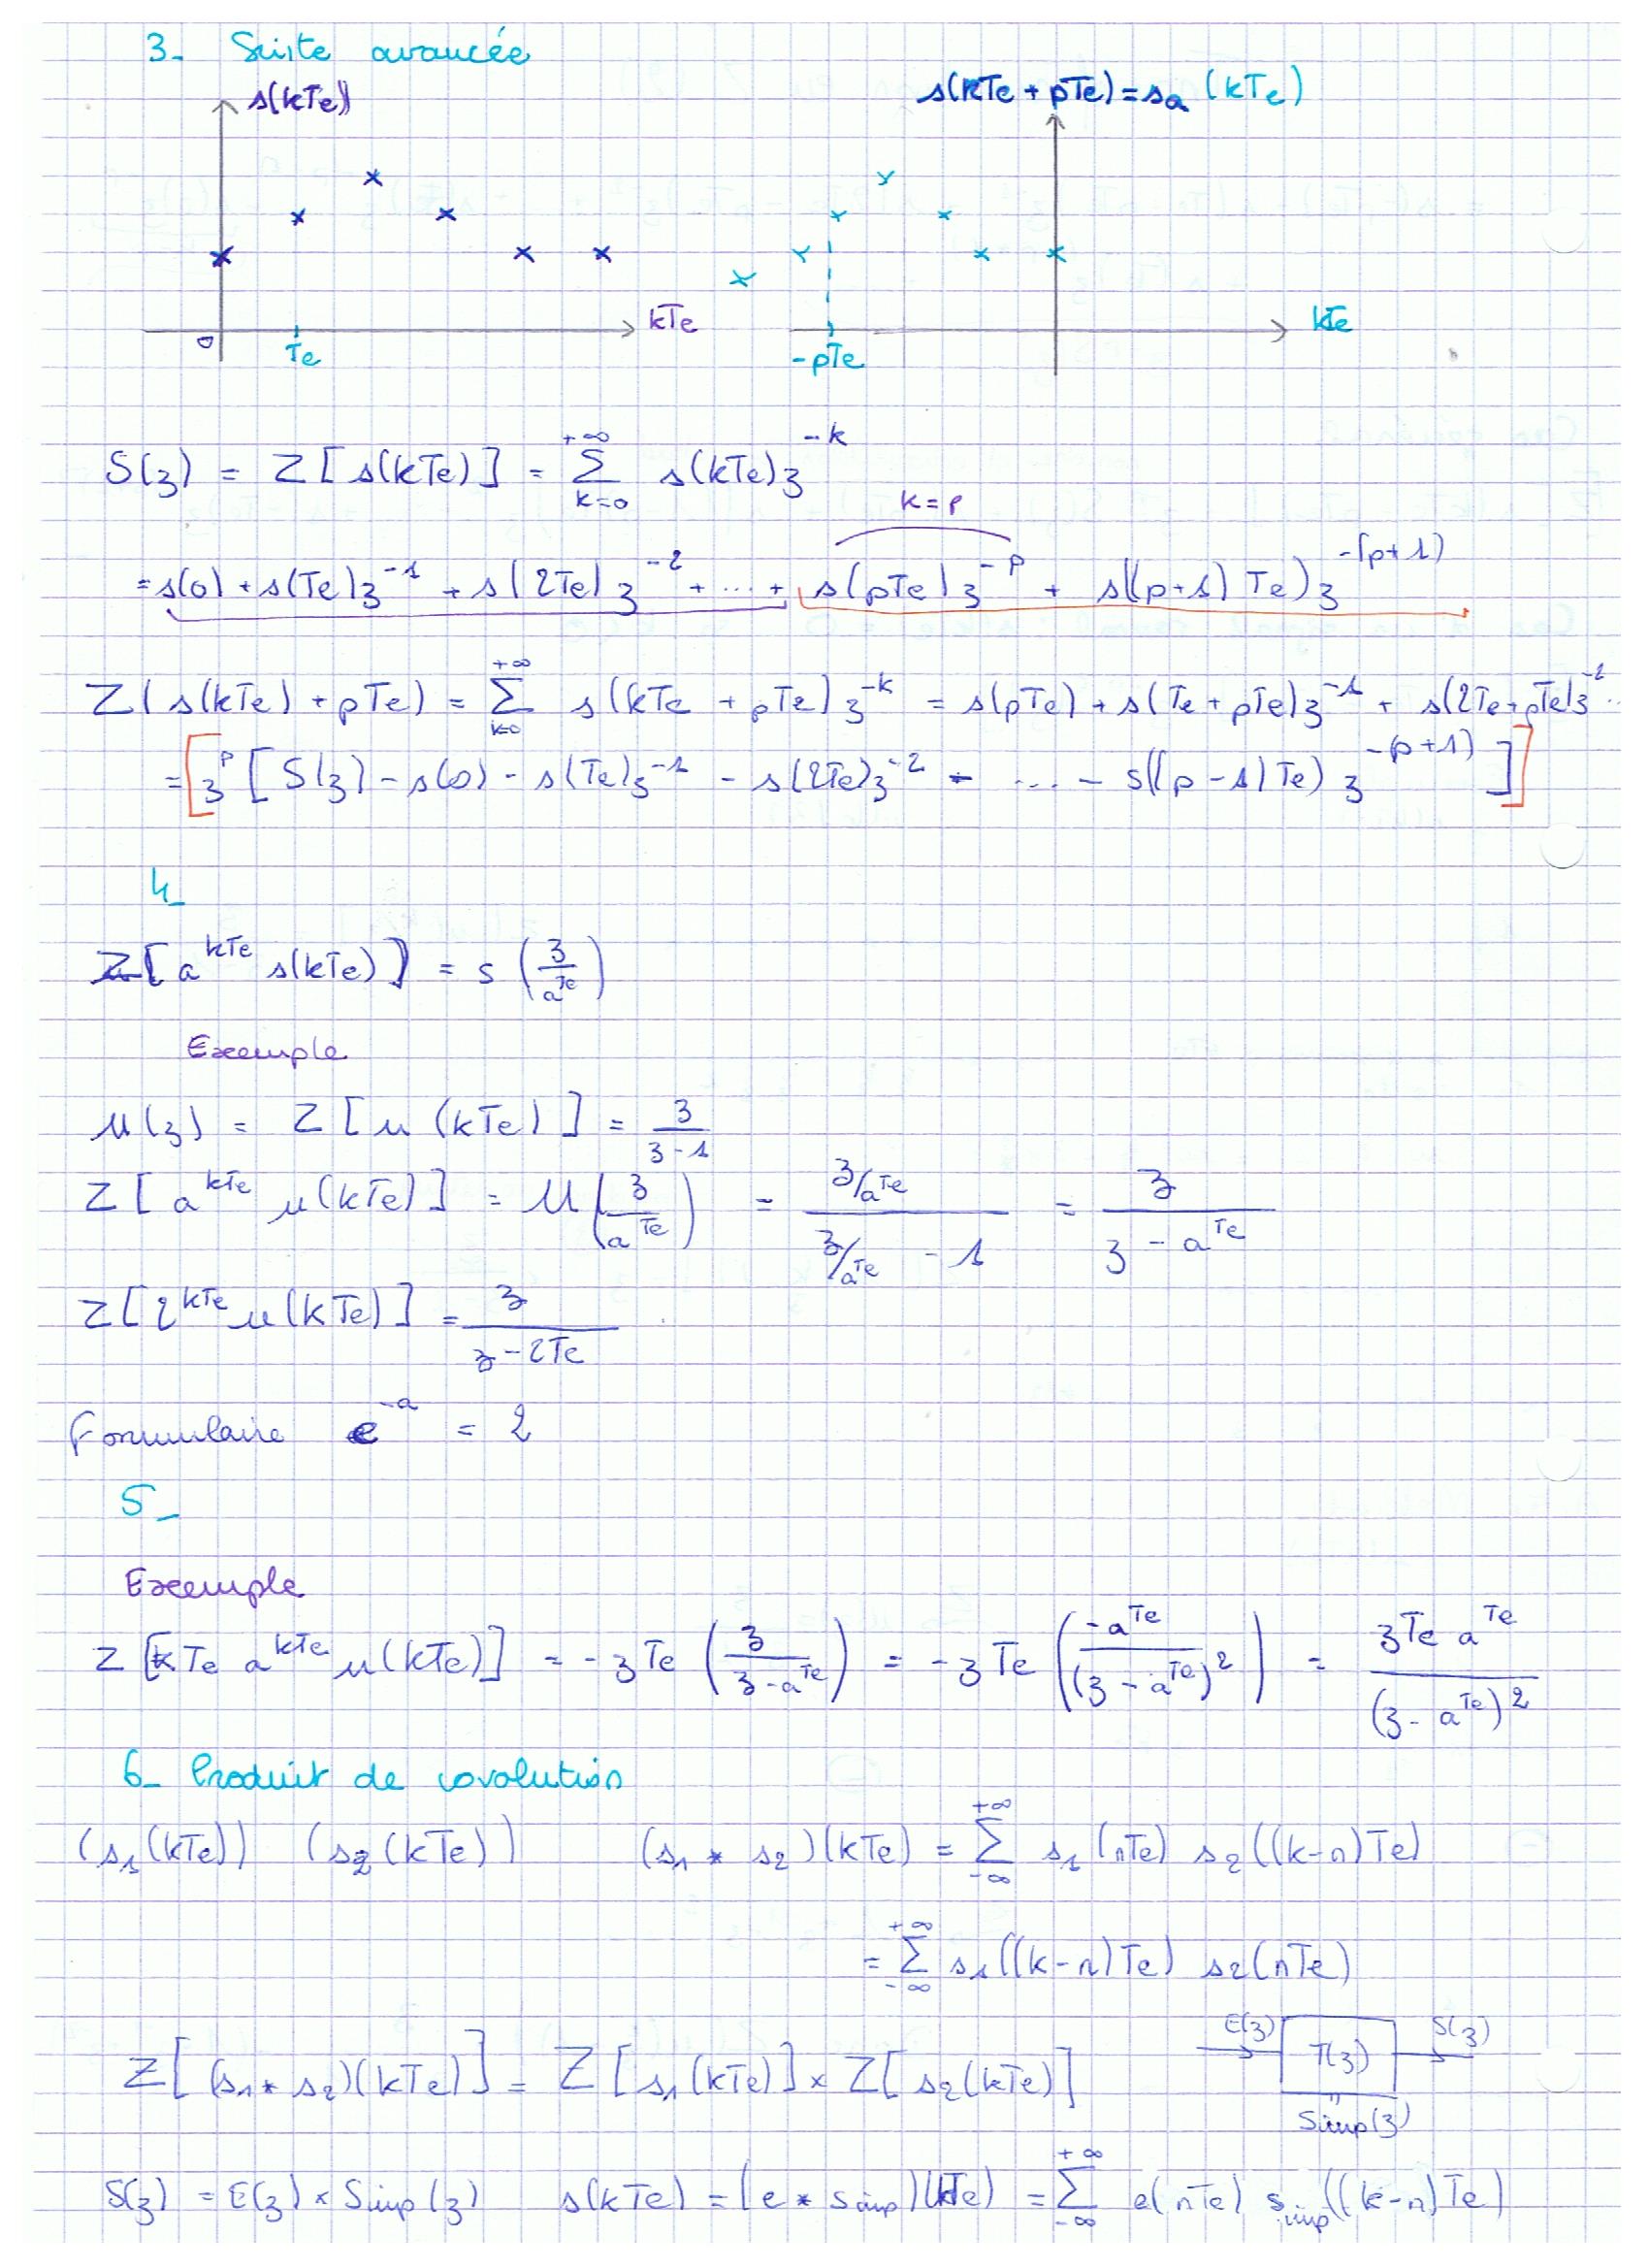 3- Suite avancée
s(kTe) s(kTe + pTe) = sa (kTe)
kTe kTe
0 Te -pTe
S(z) = Z[s(kTe)] = Σ_{k=0}^{+∞} s(kTe)z^{-k}
k = p
= s(0) + s(Te)z^{-1} + s(2Te)z^{-2} + ... + s(pTe)z^{-p} + s((p+1)Te)z^{-(p+1)}
Z(s(kTe) + pTe) = Σ_{k=0}^{+∞} s(kTe + pTe)z^{-k} = s(pTe) + s(Te + pTe)z^{-1} + s(2Te + pTe)z^{-2} ...
= [z^p [S(z) - s(0) - s(Te)z^{-1} - s(2Te)z^{-2} - ... - s((p-1)Te) z^{-(p+1)}]]
4_
Z[a^{kTe} s(kTe)] = s(z/a^{Te})
Exemple
U(z) = Z[u(kTe)] = z/(z-1)
Z[a^{kTe} u(kTe)] = U(z/a^{Te}) = (z/a^{Te})/(z/a^{Te} - 1) = z/(z - a^{Te})
Z[2^{kTe} u(kTe)] = z/(z - 2Te)
Formulaire e^{-a} = 2
5_
Exemple
Z[kTe a^{kTe} u(kTe)] = -zTe (z/(z - a^{Te})) = -zTe (-a^{Te}/(z - a^{Te})^2) = zTe a^{Te}/(z - a^{Te})^2
6_ Produit de covolution
(s1(kTe)) (s2(kTe)) (s1 * s2)(kTe) = Σ_{-∞}^{+∞} s1(nTe) s2((k-n)Te)
= Σ_{-∞}^{+∞} s1((k-n)Te) s2(nTe)
E(z) T(z) S(z)
Z[(s1 * s2)(kTe)] = Z[s1(kTe)] × Z[s2(kTe)]
"
Simp(z)
S(z) = E(z) × Simp(z) s(kTe) = (e * simp)(kTe) = Σ_{-∞}^{+∞} e(nTe) s_{imp}((k-n)Te)